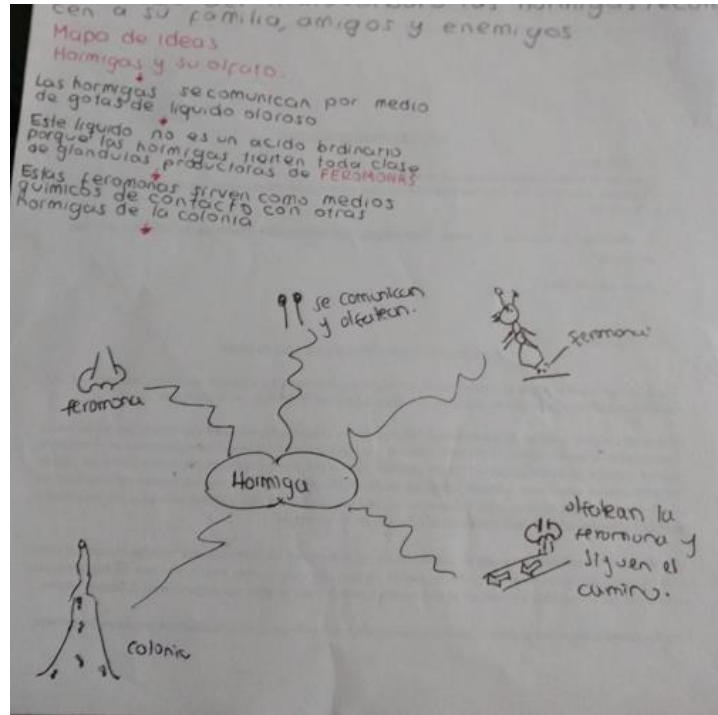 cen a su familia, amigos y enemigos
Mapa de ideas
Hormigas y su olfato.
Las hormigas se comunican por medio
de gotas de liquido oloroso
Este liquido no es un acido ordinario
porque las hormigas tienen toda clase
de glandulas productoras de FEROMONAS
Estas feromonas sirven como medios
quimicos de contacto con otras
hormigas de la colonia
se comunican
y olfatean.
feromona
feromona
Hormiga
olfatean la
feromona y
siguen el
camino.
colonia